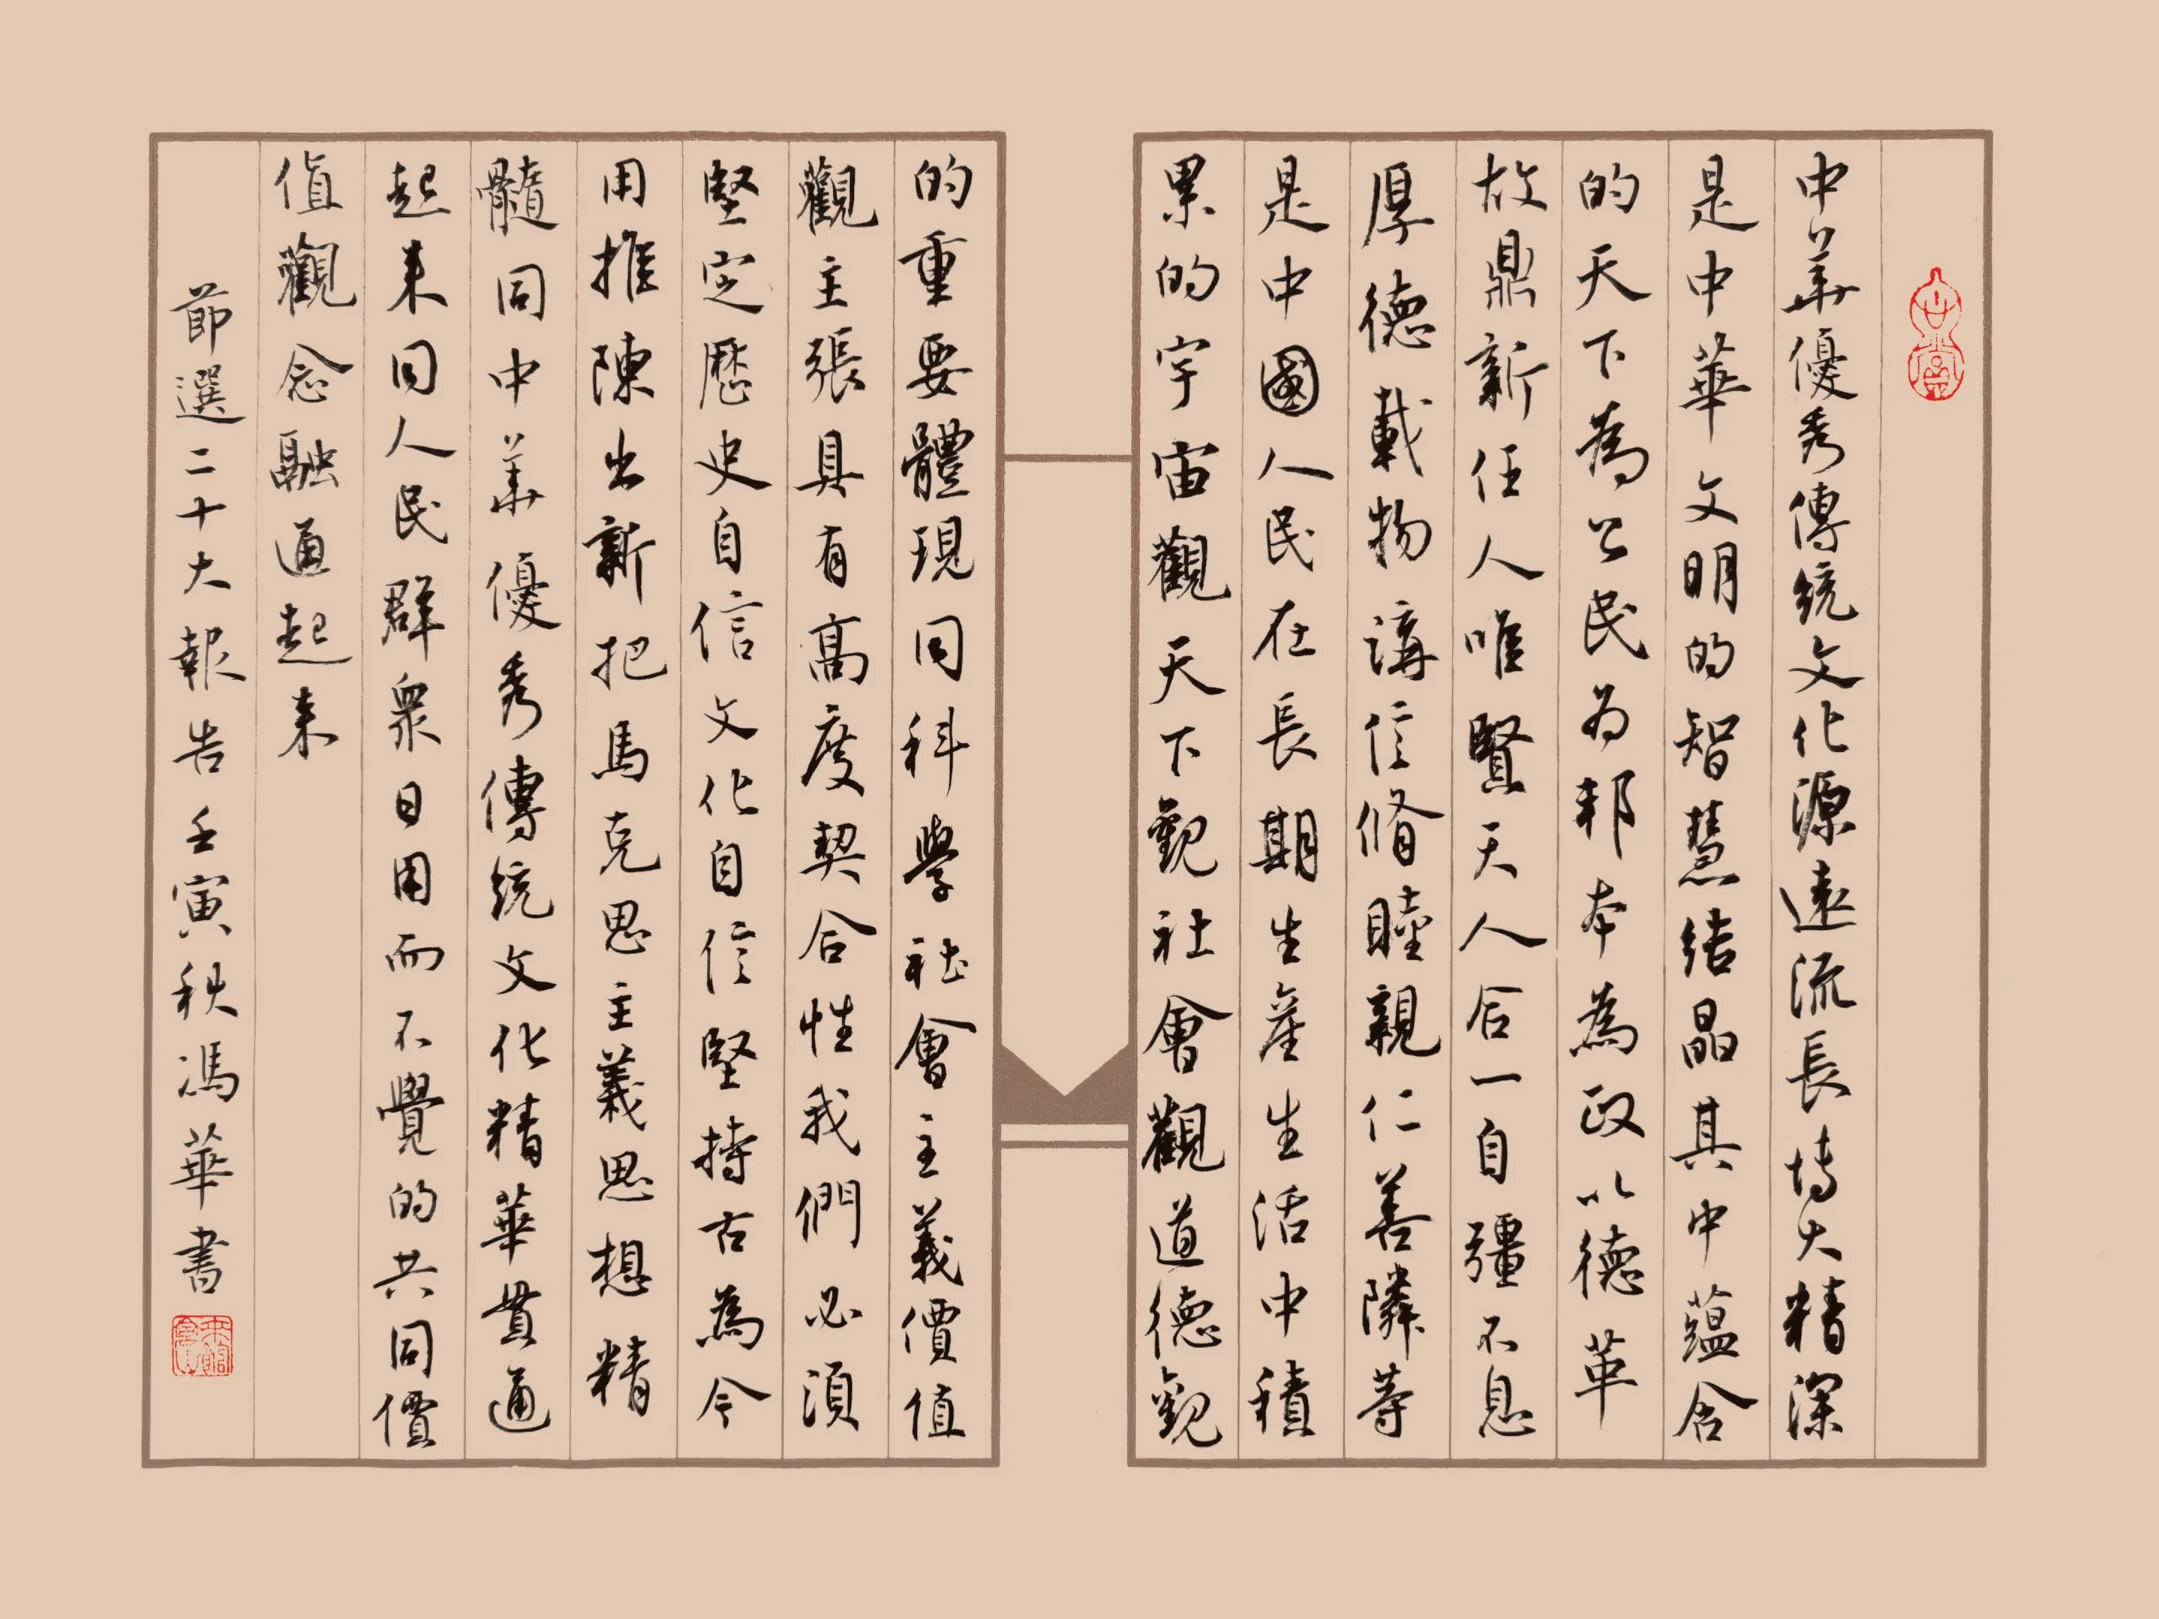 中華優秀傳統文化源遠流長博大精深
是中華文明的智慧結晶其中蘊含
的天下為公民為邦本為政以德革
故鼎新任人唯賢天人合一自彊不息
厚德載物講信脩睦親仁善隣等
是中國人民在長期生產生活中積
累的宇宙觀天下觀社會觀道德觀
的重要體現同科學社會主義價值
觀主張具有高度契合性我們必須
堅定歷史自信文化自信堅持古為今
用推陳出新把馬克思主義思想精
髓同中華優秀傳統文化精華貫通
起来同人民群眾日用而不覺的共同價
值觀念融通起来
節選二十大報告壬寅秋馮華書